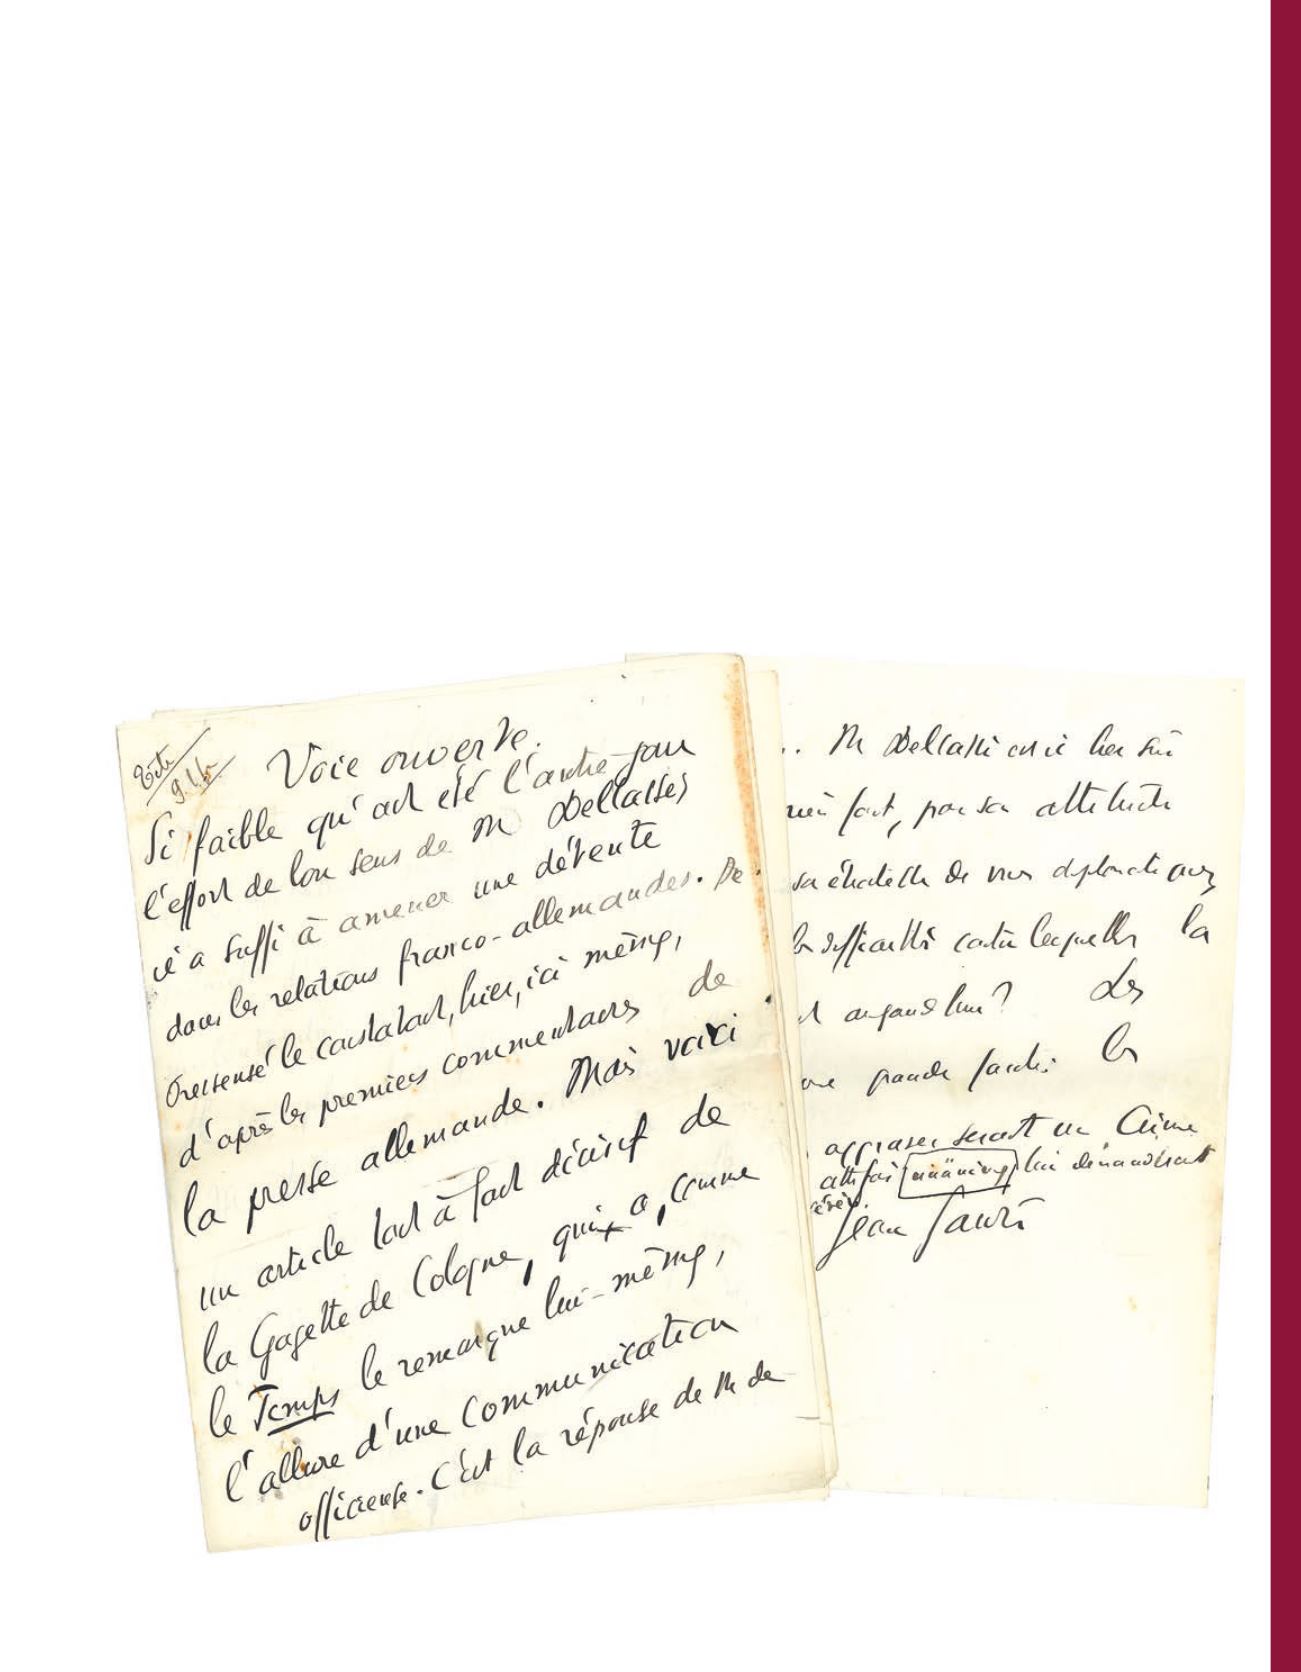 Tête
Voie ouverte.
Si faible qu'ait été l'autre jour
l'effort de bon sens de M Dellassés
il a suffi à amener une détente
dans les relations franco-allemandes. De
Pressensé le constatait, hier, ici même,
d'après les premiers commentaires de
la presse allemande. Mais voici
un article tout à fait décisif de
la Gazette de Cologne, qui a, comme
le Temps le remarque lui-même,
l'allure d'une communication
officieuse. C'est la réponse de M de
M Dellassé
fait, par son attitude
sa de vues diplomatiques,
les difficultés contre lesquelles la
aujourd'hui? Les
grande partie. les
aggraver serait un Crime
lui demanderait
Jean Jaurès